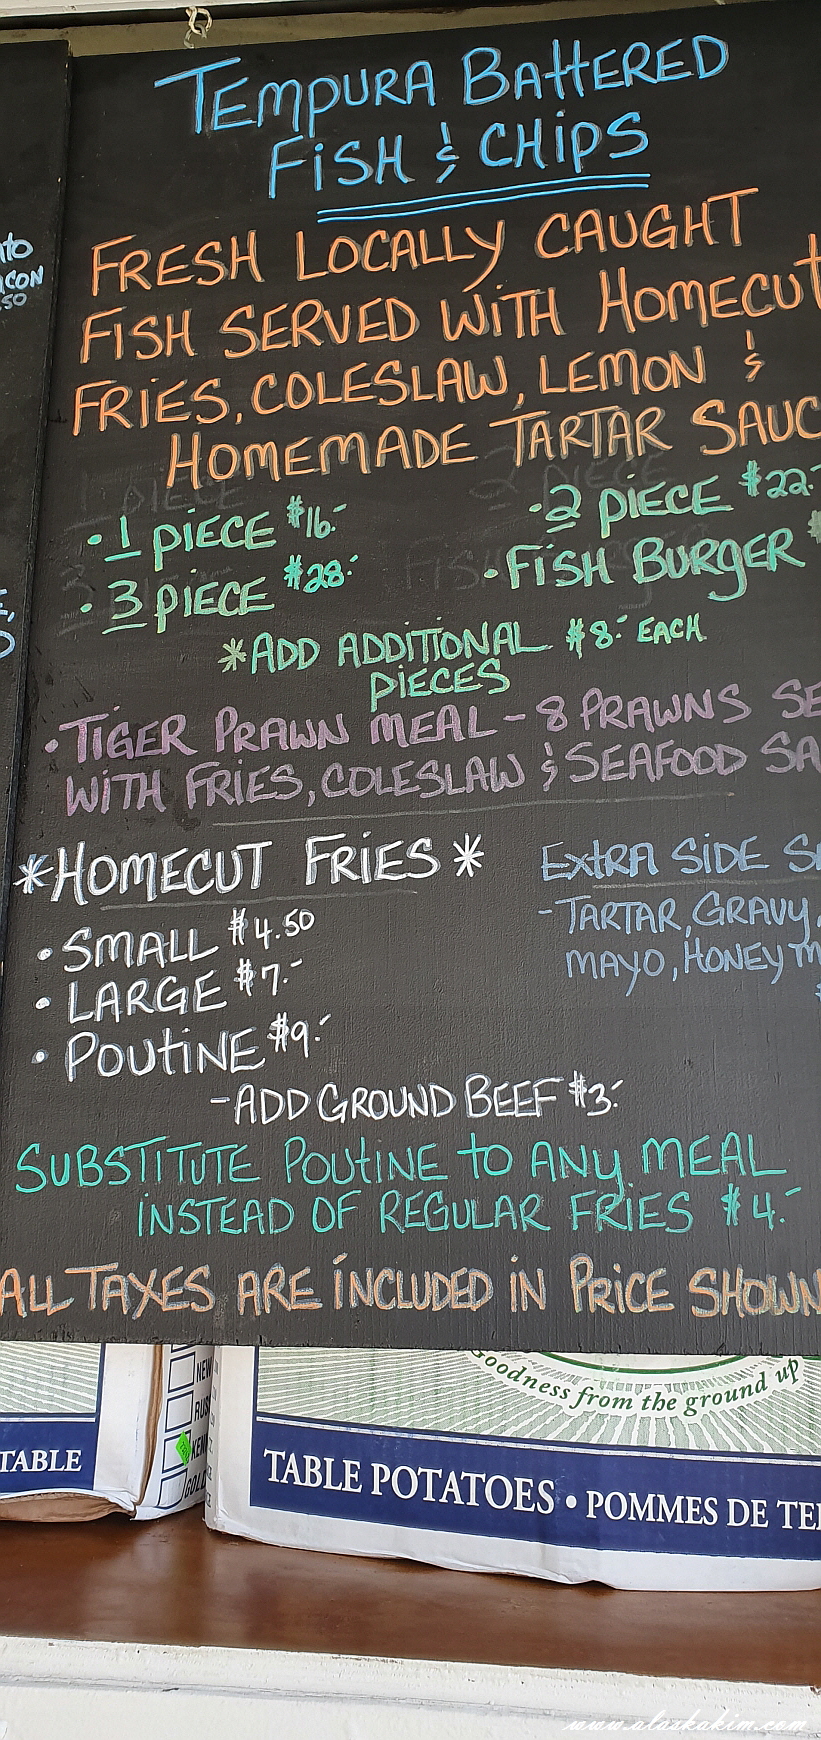 TEMPURA BAttERED
FiSH & CHiPS
FRESH LOCALLY CAUGHT
FISH SERVED WITH HOMECUt
FRiES, COLESLAW, LEMON &
HOMEMADE TARTAR SAUC
• 1 PiECE $16.-
• 2 PiECE $22.-
• 3 PiECE $28.-
• FiSH BURGER $
*ADD ADDITIONAL $8.- EACH
PiECES
• TIGER PRAWN MEAL - 8 PRAWNS SE
WITH FRIES, COLESLAW & SEAFOOD SA
*HOMECUT FRiES*
• SMALL $4.50
• LARGE $7.-
• POUtiNE $9.-
- ADD GROUND BEEF $3.-
EXtRA SiDE S
- TARTAR, GRAVY,
MAYO, HONEY M
SUBSTITUTE POUtiNE to ANY MEAL
INSTEAD OF REGULAR FRIES $4.-
ALL TAXES ARE iNCLUDED iN PRiCE SHOWN
ACON
.50
Goodness from the ground up
NEW
RUS
KENN
GOLD
TABLE
TABLE POTATOES • POMMES DE TE
www.alaskakim.com